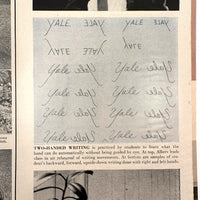 YALE YALE
YALE YALE
Yale Yale
Yale Yale
Yale Yale
Yale Yale
TWO-HANDED WRITING is practiced by students to learn what the
hand can do automatically without being guided by eye. At top, Albers leads
class in air rehearsal of writing movements. At bottom are samples of stu-
dent's backward, forward, upside-down writing done with right and left hands.